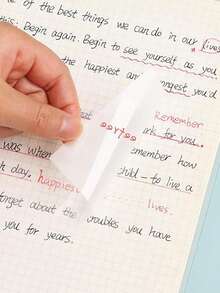 of the best things we can do in our lives
this: Begin again. Begin to see yourself as you
the happiest and youngest you'd
Remember
at work for you.
was when remember how
h day. happiest child – to live a
lives
forget about the troubles you have
you for years.